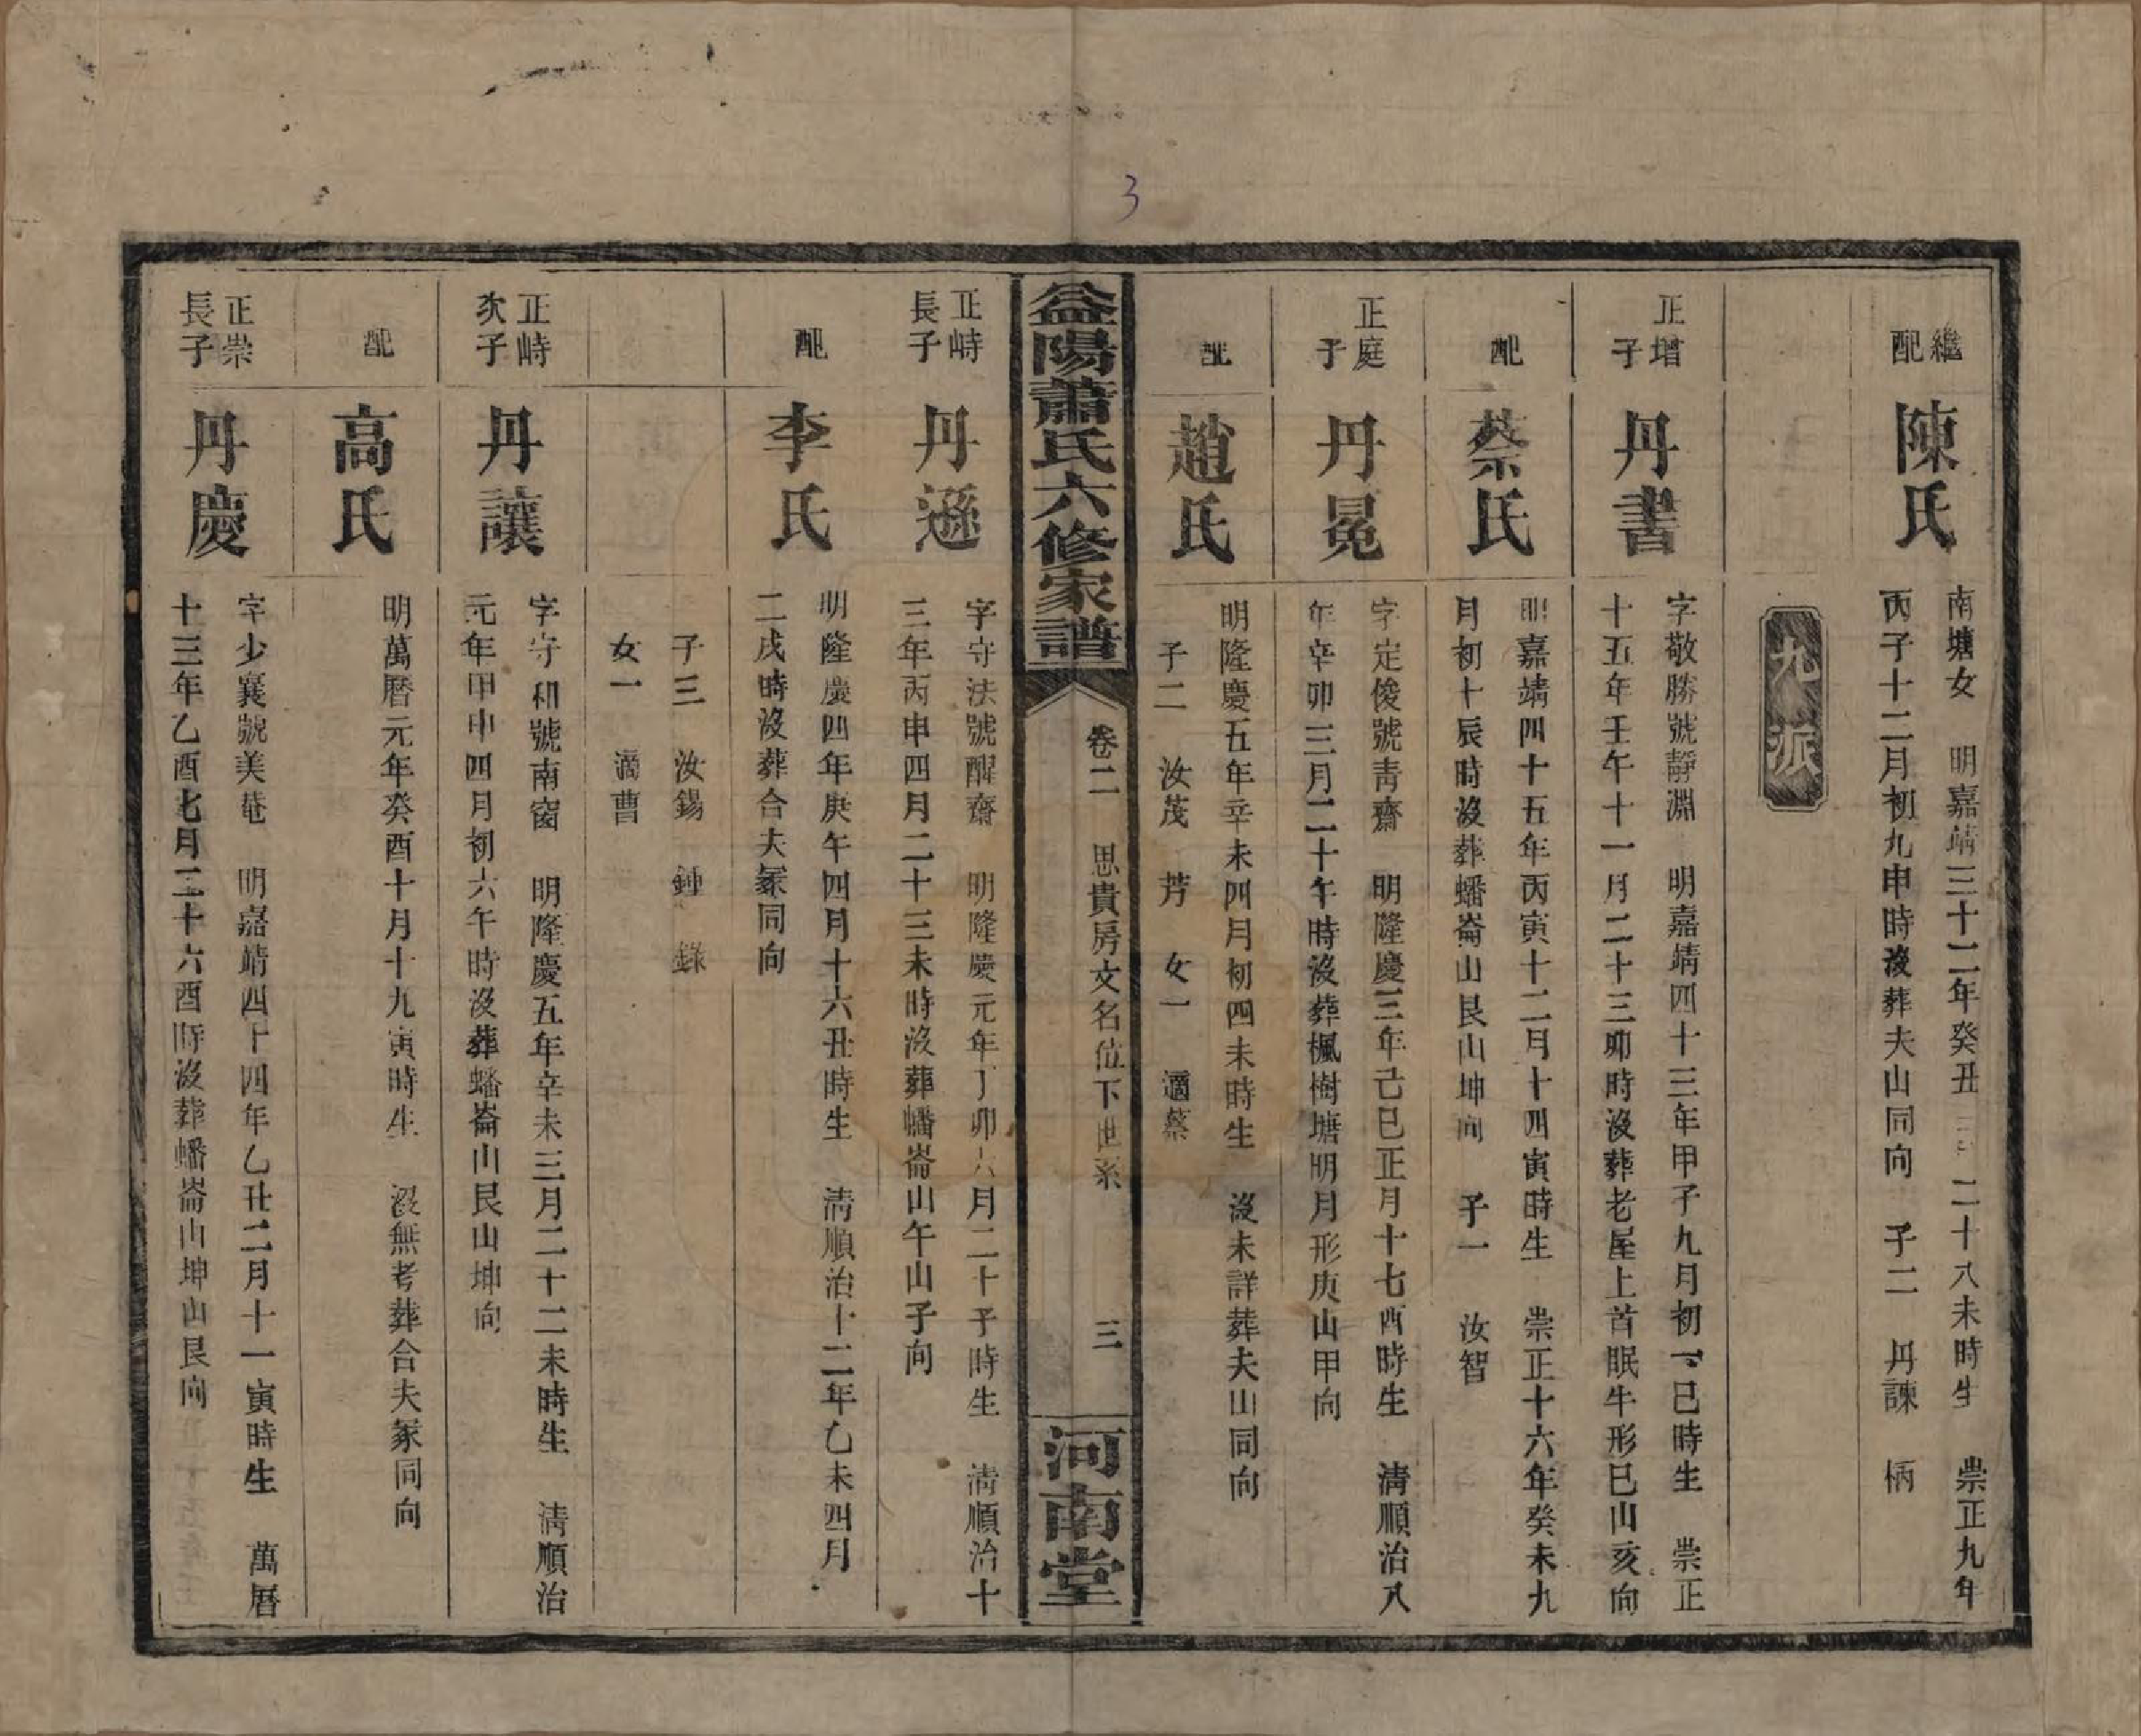 3
繼
配
陳氏
南塘女　明嘉靖三十二年癸丑　二十八未時生　崇正九年
丙子十二月初九申時沒葬夫山同向　子二　丹諫　柄
九派
正增
子
丹書
字敬勝號靜淵　明嘉靖四十三年甲子九月初一巳時生　崇正
十五年壬午十一月二十三卯時沒葬老屋上首眠牛形巳山亥向
配
蔡氏
明嘉靖四十五年丙寅十二月十四寅時生　崇正十六年癸未九
月初十辰時沒葬蟠崙山艮山坤向　子一　汝智
正庭
子
丹冕
字定俊號青齋　明隆慶三年己巳正月十七酉時生　清順治八
年辛卯三月二十午時沒葬楓樹塘明月形庚山甲向
配
趙氏
明隆慶五年辛未四月初四未時生　沒未詳葬夫山同向
子二　汝茂　芳　女一　適蔡
益陽蕭氏六修家譜
卷二　思貴房文名位下世系
三
河南堂
正峙
長子
丹遜
字守法號醒齋　明隆慶元年丁卯六月二十子時生　清順治十
三年丙申四月二十三未時沒葬蟠崙山午山子向
配
李氏
明隆慶四年庚午四月十六丑時生　清順治十二年乙未四月
二戌時沒葬合夫冢同向
子三　汝錫　鍾　錄
女一　適曹
正峙
次子
丹讓
字守和號南窗　明隆慶五年辛未三月二十二未時生　清順治
元年甲申四月初六午時沒葬蟠崙山艮山坤向
配
高氏
明萬曆元年癸酉十月十九寅時生　沒無考葬合夫冢同向
正崇
長子
丹慶
字少襄號美菴　明嘉靖四十四年乙丑二月十一寅時生　萬曆
十三年乙酉七月二十六酉時沒葬蟠崙山坤山艮向